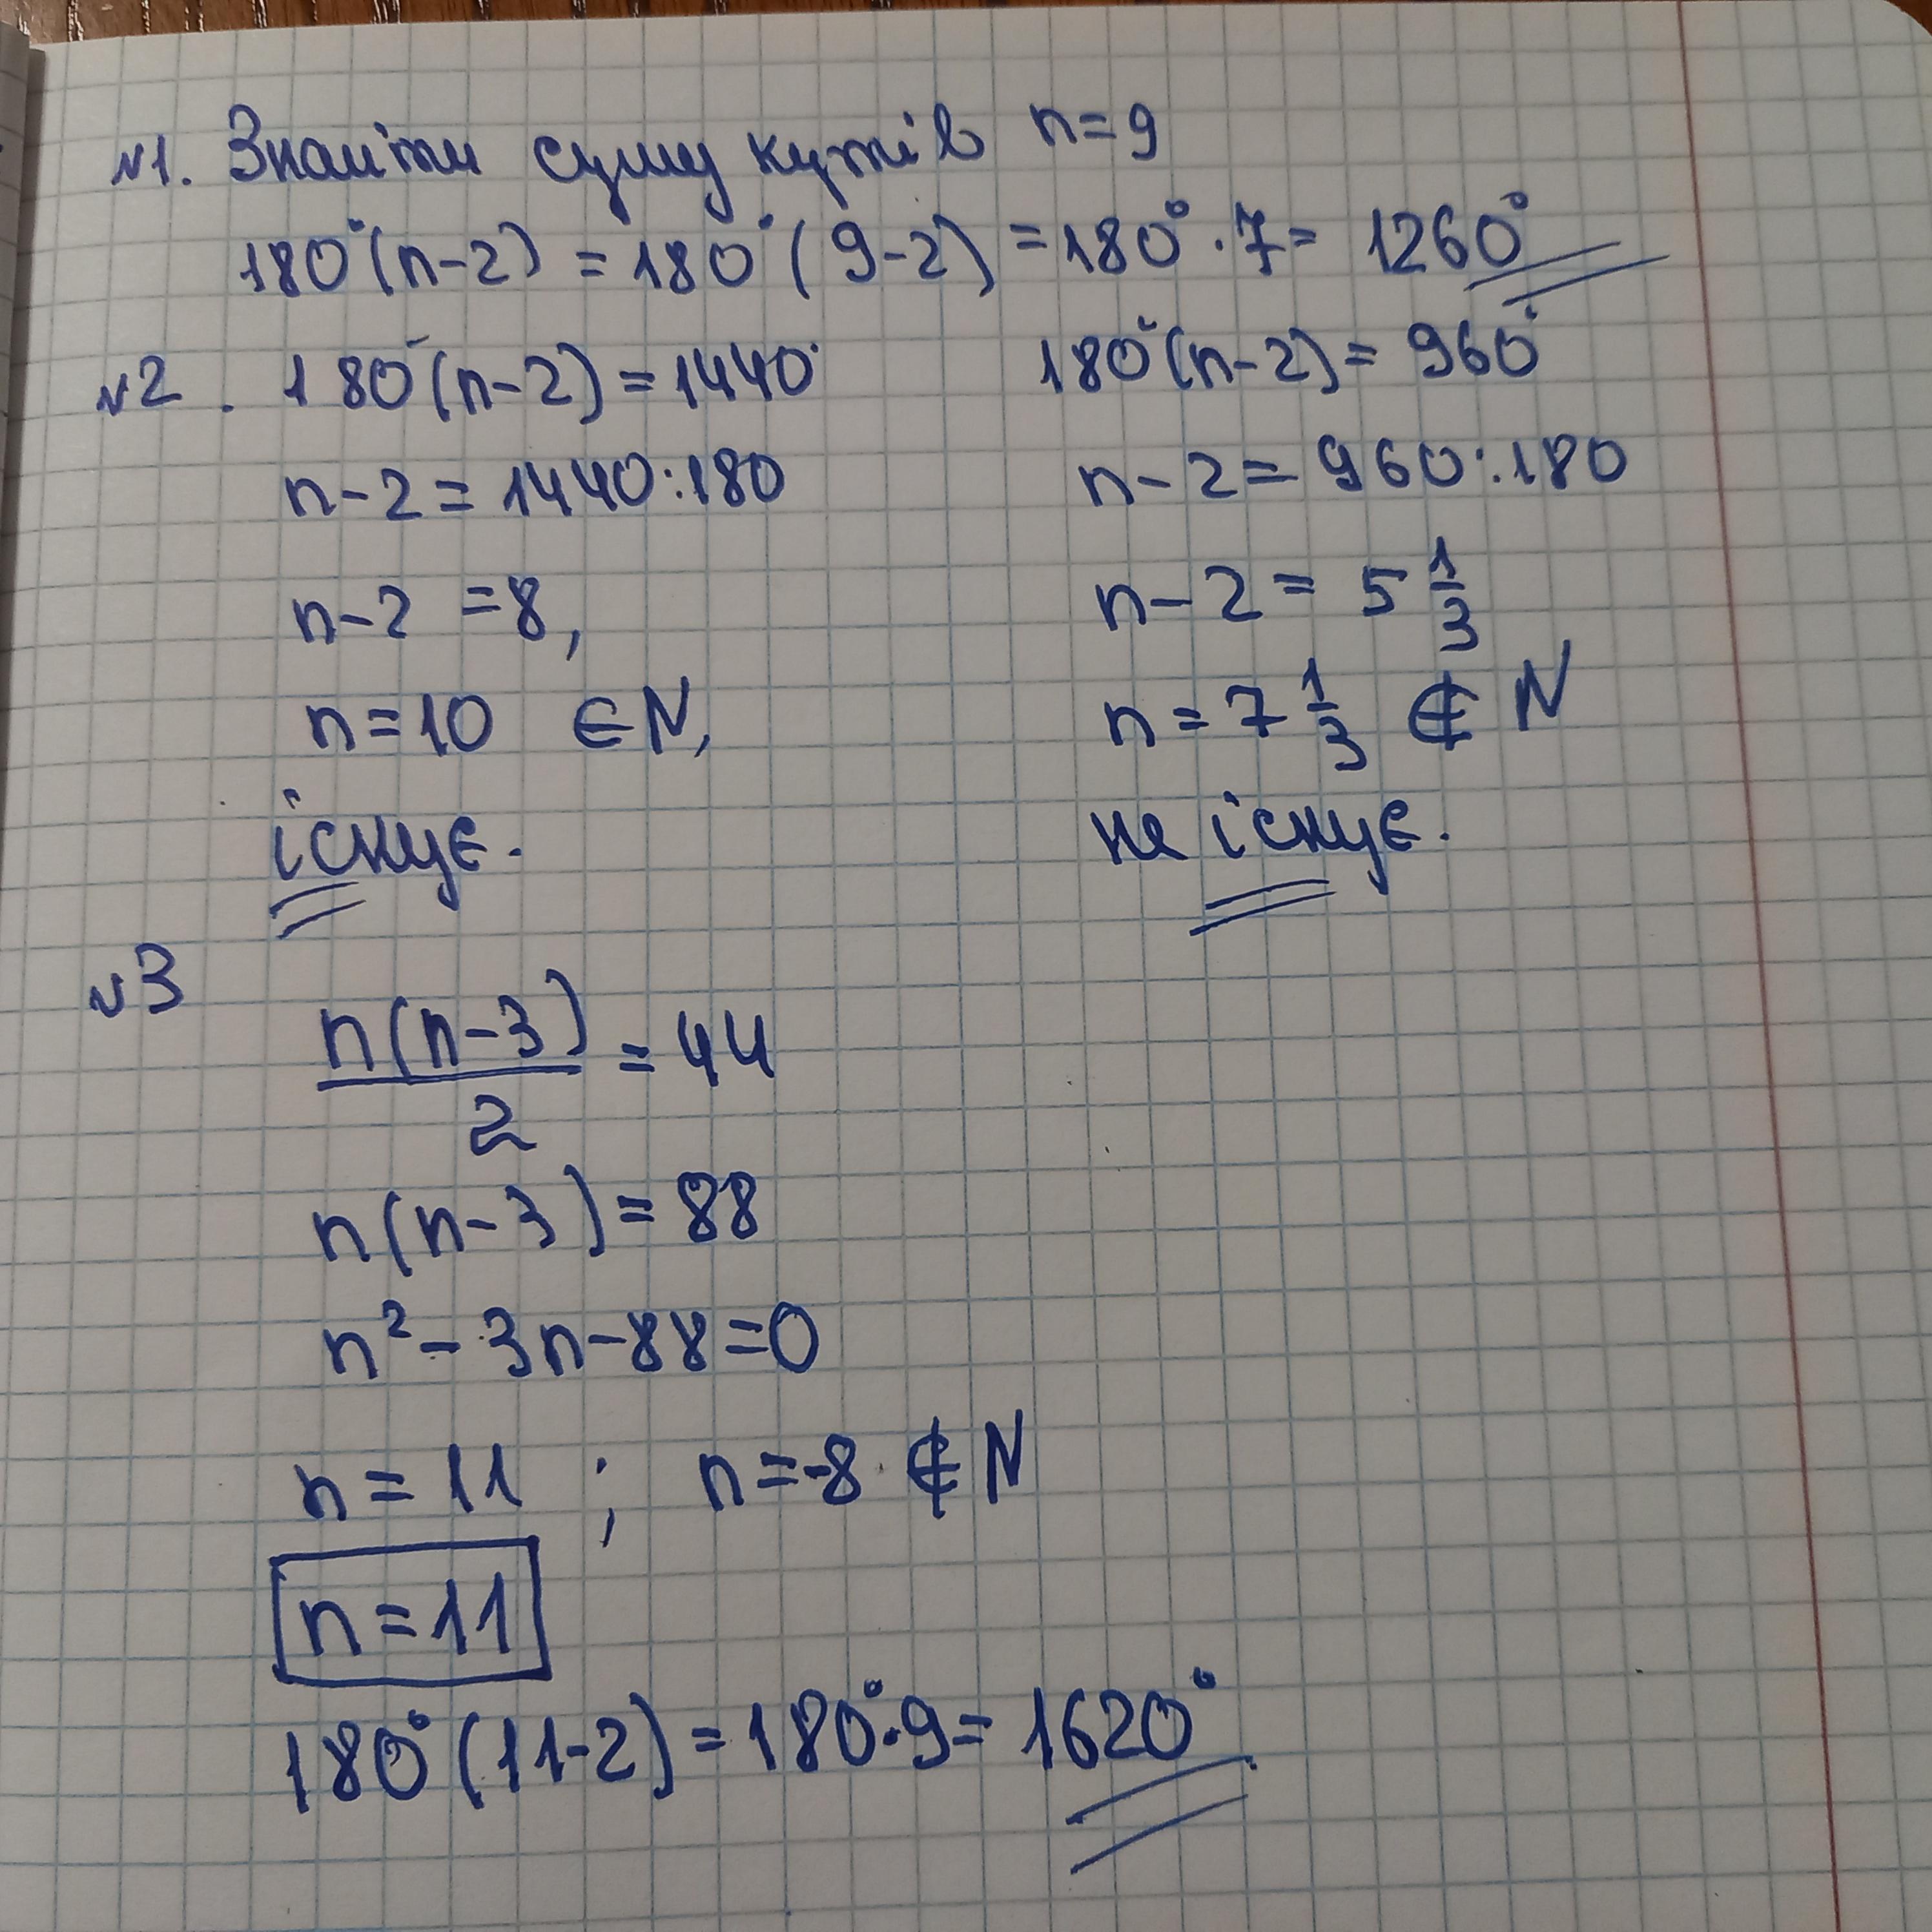 №1. Знайти суму кутів n=9
180°(n-2) = 180°(9-2) = 180°·7= 1260°
№2. 180°(n-2)=1440°
n-2=1440:180
n-2 =8,
n=10 ∈N,
існує.
180°(n-2)= 960°
n-2=960:180
n-2= 5 1/3
n=7 1/3 ∉ N
не існує.
№3
n(n-3)/2 =44
n(n-3)=88
n²-3n-88=0
n=11 ; n=-8 ∉ N
n=11
180°(11-2)=180°·9= 1620°